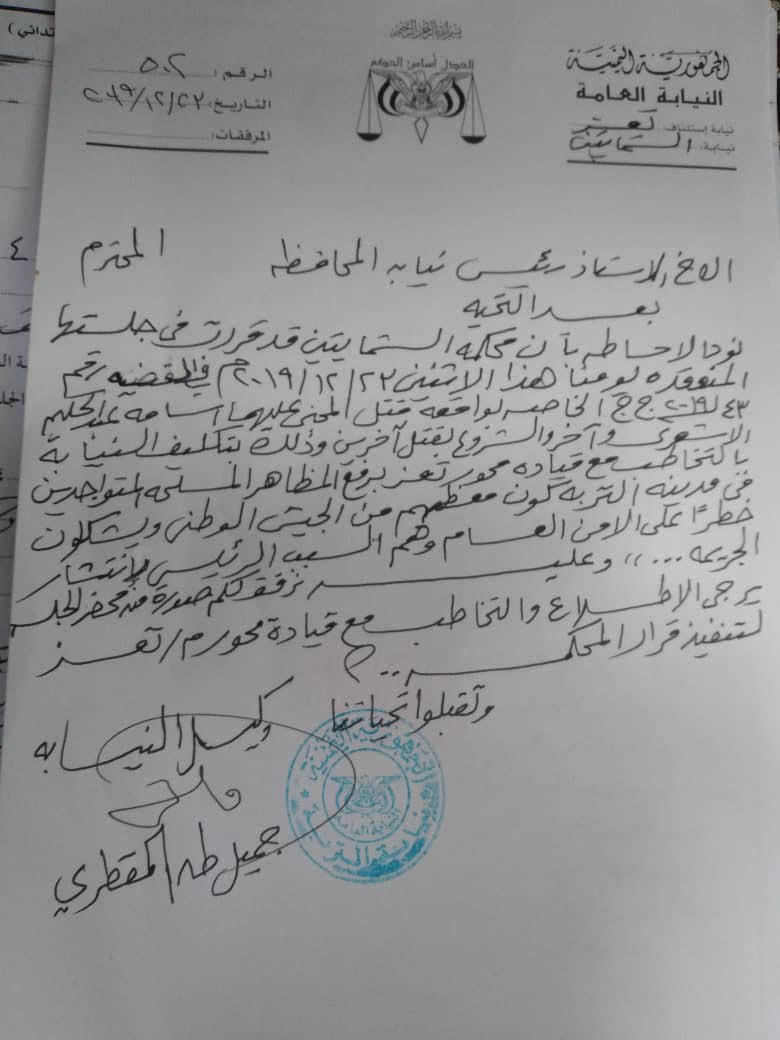 بسم الله الرحمن الرحيم
الجمهورية اليمنية
النيابة العامة
نيابة إستئناف: تعز
نيابة: الشمايتين
العدل أساس الحكم
الرقم: ٥٠٢
التاريخ: ٢٠١٩/١٢/٢٣
المرفقات:
الاخ الاستاذ رئيس نيابه المحافظه المحترم
بعد التحيه
نود الاحاطه بأن محكمه الشمايتين قد قررت في جلستها
المنعقده يومنا هذا الاثنين ٢٣/١٢/٢٠١٩م في القضيه رقم
٤٣ ل ٢٠١٩ ج ج الخاصه بواقعه قتل المجني عليهما اسامه عبدالحكيم
الاشعري وآخر والشروع بقتل آخرين وذلك بتكليف النيابة
بالتخاطب مع قياده محور تعز برفع المظاهر المسلحه المتواجدين
في مدينه التربه كون معظمهم من الجيش الوطني ويشكلون
خطراً على الامن العام وهم السبب الرئيسي لإنتشار
الجريمه ...،، وعليه نرفق لكم صورة من محضر الجلسه
يرجى الإطلاع والتخاطب مع قيادة محور م/تعز
لتنفيذ قرار المحكمه ..
وتقبلوا تحياتنا
وكيل النيابه
جميل طه المقطري
الجمهورية اليمنية
النيابة العامة
نيابة التربة